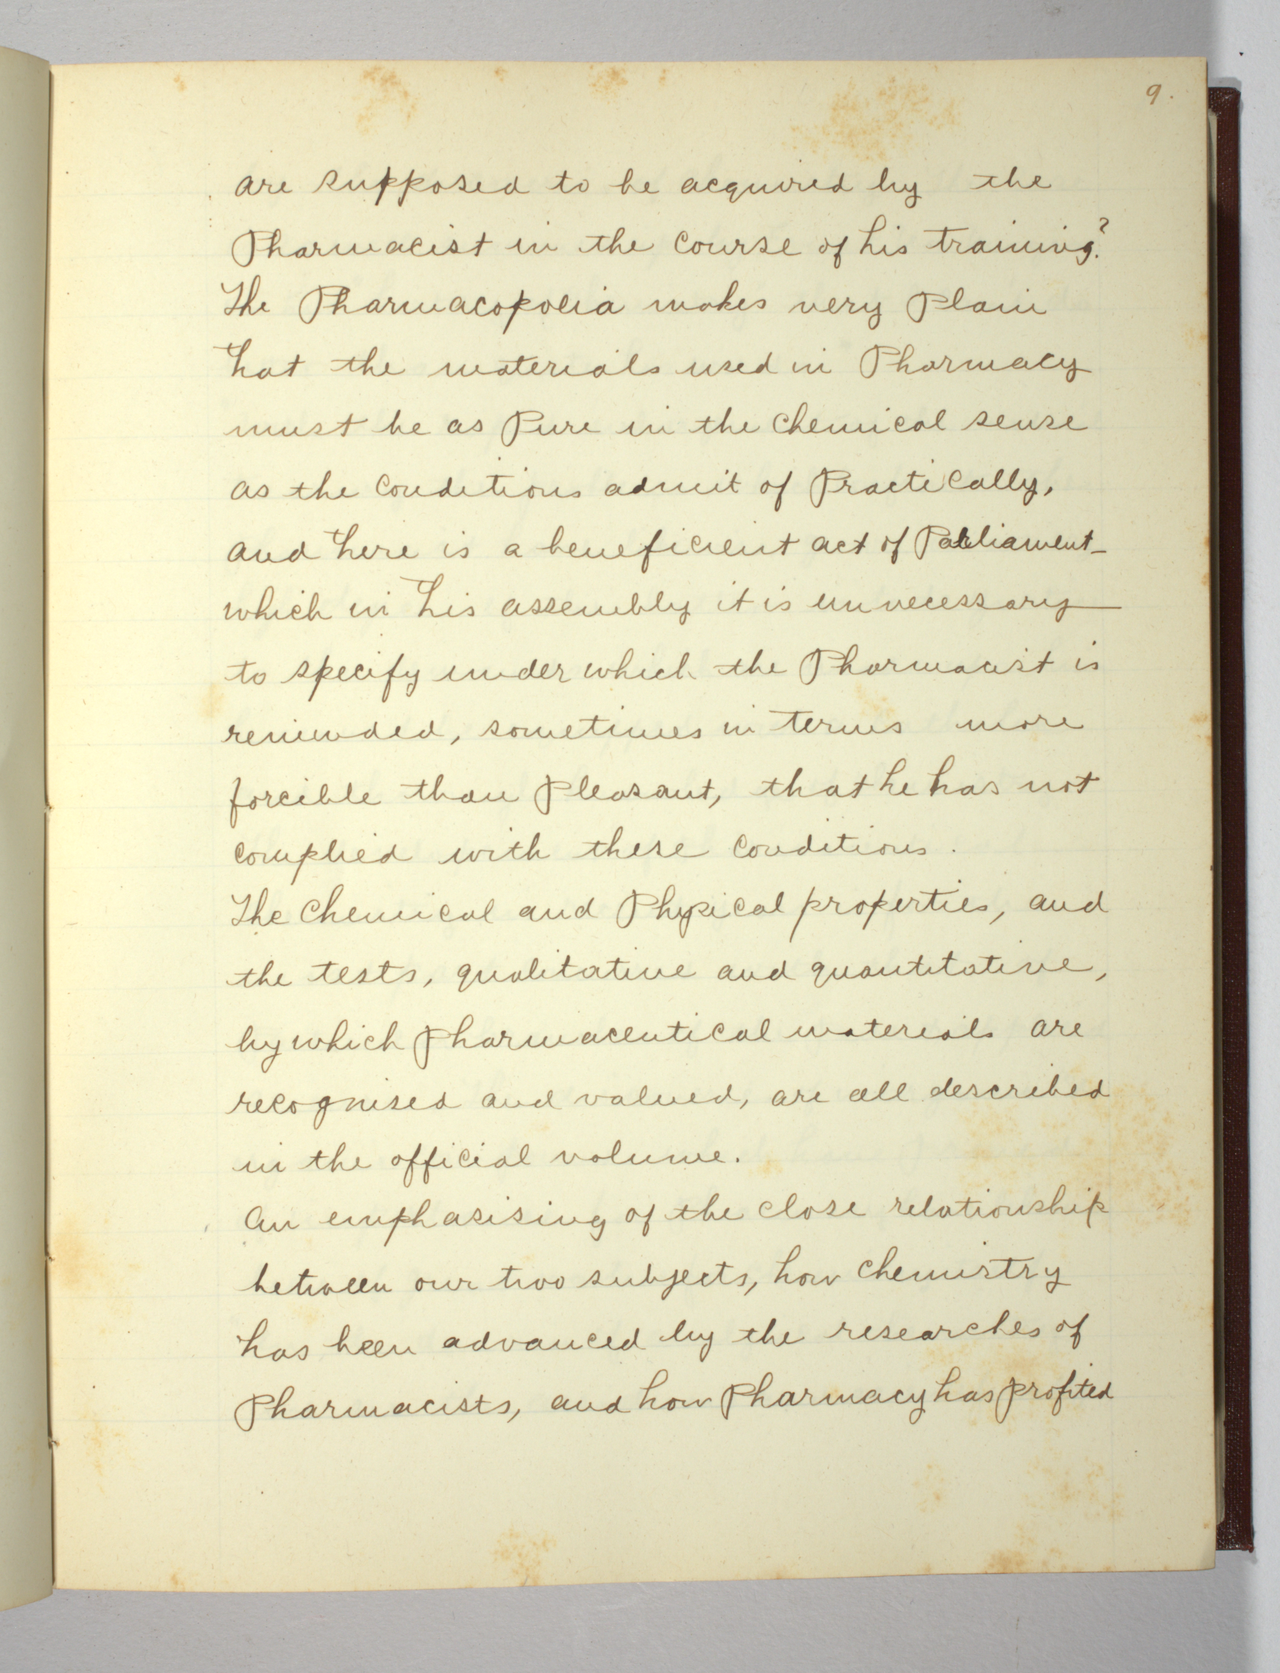 9.
are supposed to be acquired by the
Pharmacist in the course of his training?
The Pharmacopoeia makes very Plain
that the materials used in Pharmacy
must be as Pure in the Chemical sense
as the Conditions admit of Practically,
and there is a beneficient act of Parliament
which in this assembly it is unnecessary
to specify under which the Pharmacist is
reminded, sometimes in terms more
forcible than Pleasant, that he has not
complied with these Conditions.
The Chemical and Physical properties, and
the tests, qualitative and quantitative,
by which Pharmaceutical materials are
recognised and valued, are all described
in the official volume.
An emphasising of the close relationship
between our two subjects, how Chemistry
has been advanced by the researches of
Pharmacists, and how Pharmacy has profited